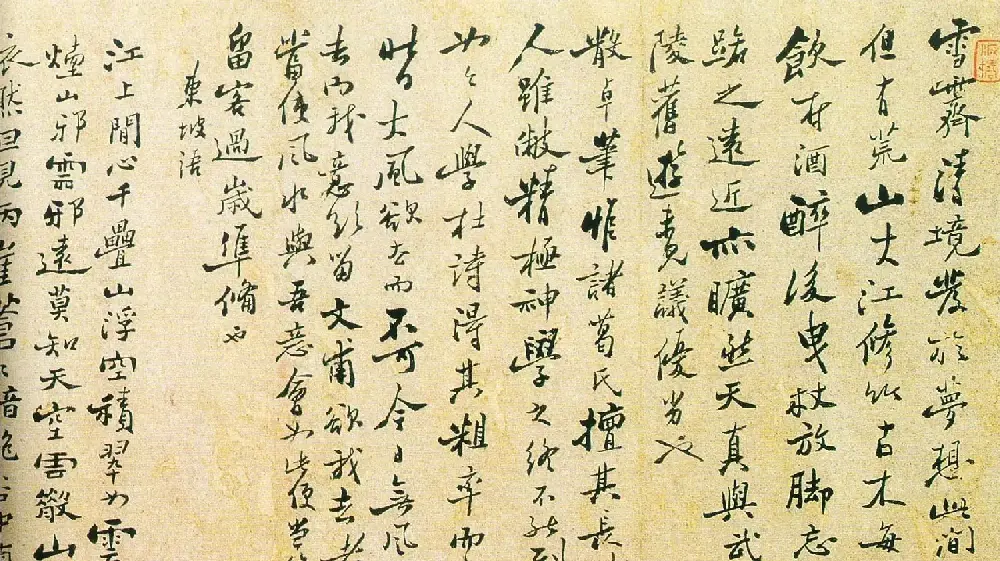 雪齋清境發於夢想此間
但有荒山大江修竹古木每
飲村酒醉後曳杖放脚忘
踏之遠近亦曠然天真與武
陵舊遊未見議優劣也
散卓筆惟諸葛氏擅其長
人雖敝精極神學之終不能到
如人學杜詩得其粗率而
昨日大風欲去而不可今日無風
去而我意欲留文甫欲我去者
當使風水與吾意會如此便當作
留客過歲準備也
東坡語
江上閒心千疊山浮空積翠如雲
煙山邪雲邪遠莫知天空雲散山
依然但見兩崖蒼蒼暗絕谷中有